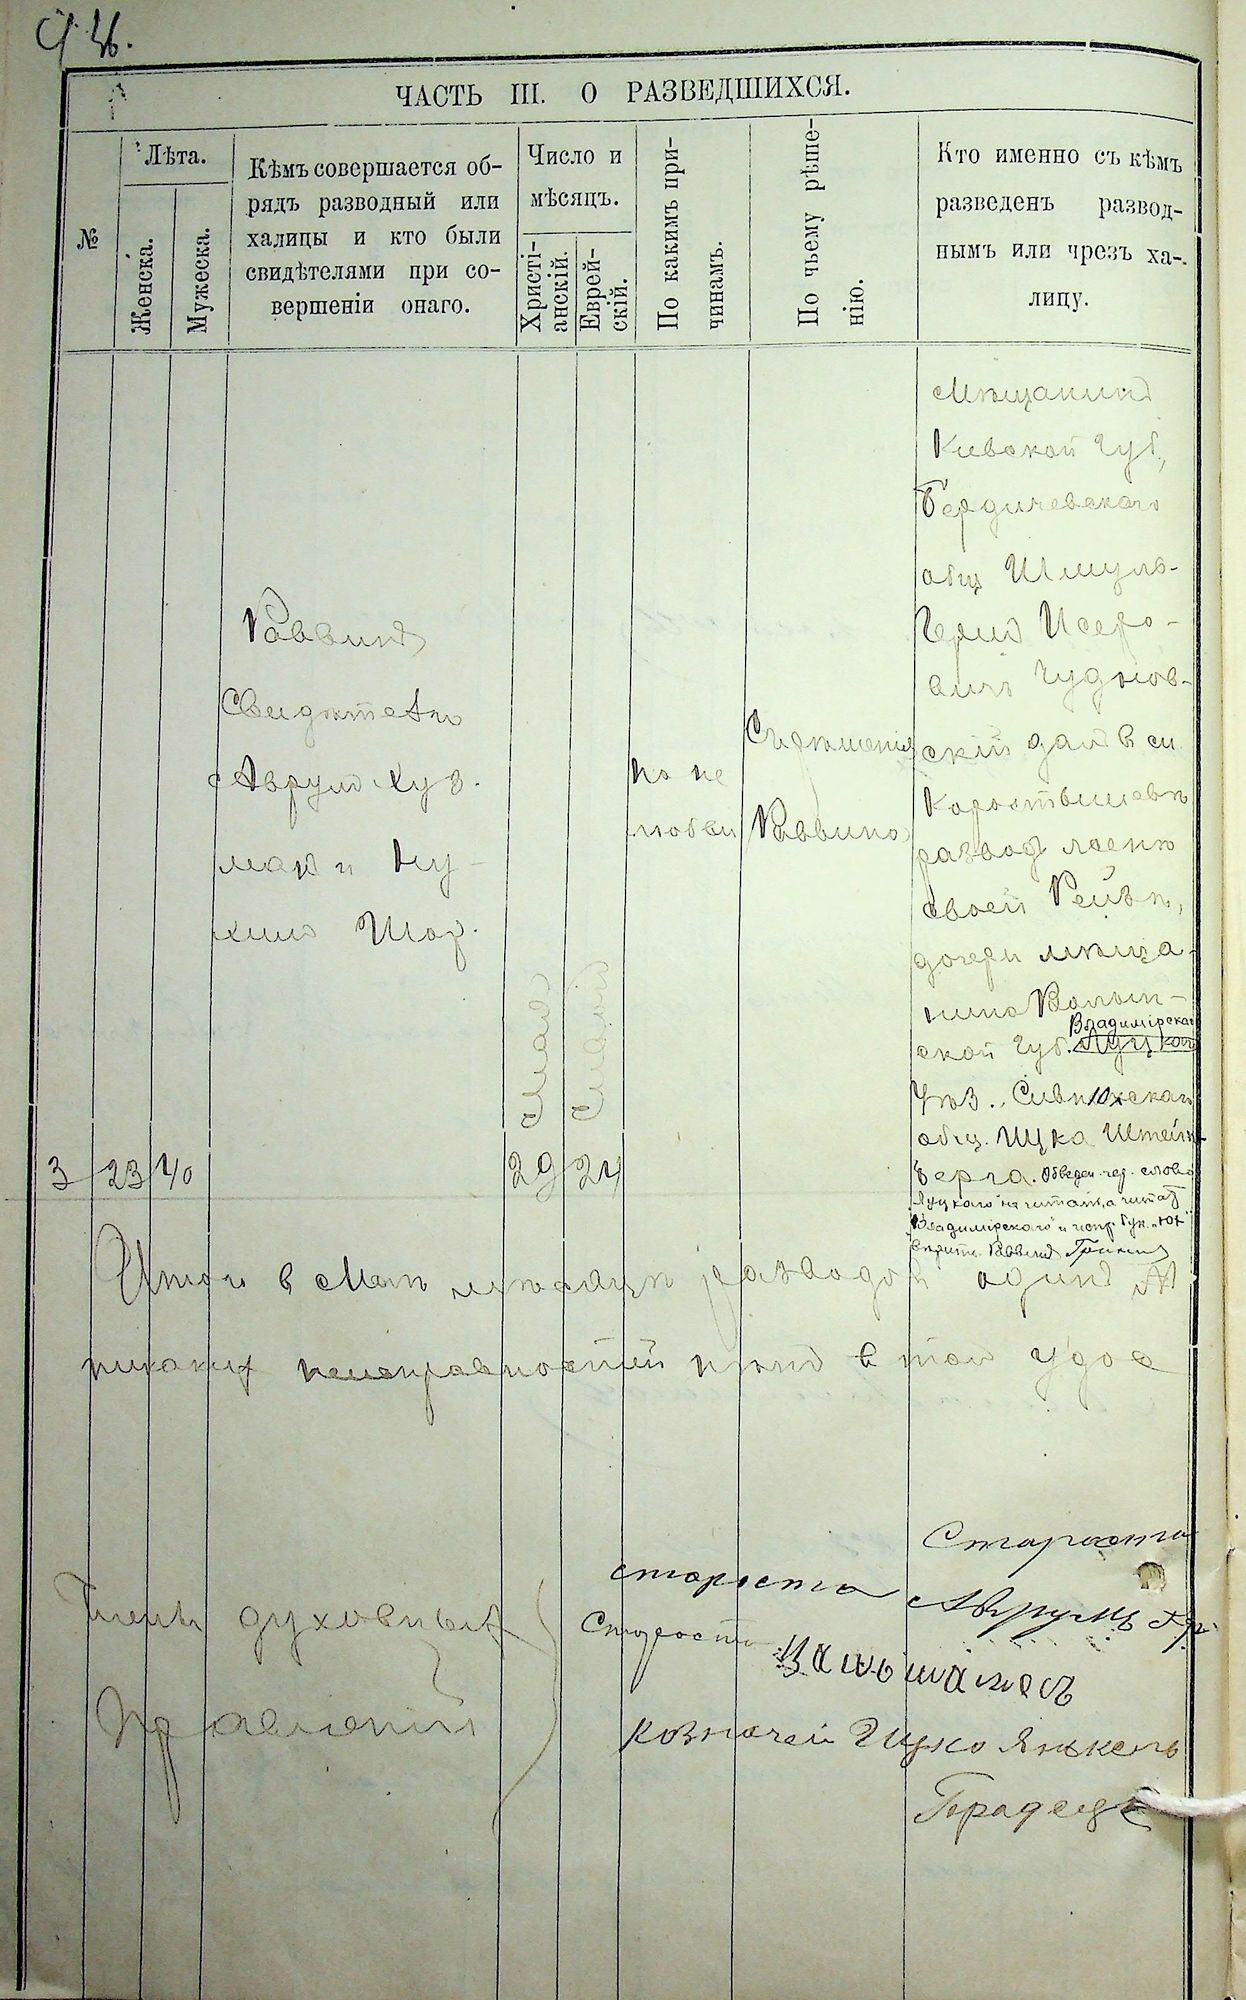 ЧАСТЬ III. О РАЗВЕДШИХСЯ.
№
Лѣта.
Женска.
Мужеска.
Кѣмъ совершается об-
рядъ разводный или
халицы и кто были
свидѣтелями при со-
вершеніи онаго.
Число и
мѣсяцъ.
Христі-
анскій.
Еврей-
скій.
По какимъ при-
чинамъ.
По чьему рѣше-
нію.
Кто именно съ кѣмъ
разведенъ развод-
нымъ или чрезъ ха-
лицу.
3
23
40
Раввинъ
Свидѣтели
Аврум Куз-
мак и Ну-
хим Шор.
29
Мая
24
по не
любви
Съ рѣшенія
Раввина
Мѣщанинъ
Киевской Губ,
Бердичевскаго
общ Шмуль-
Герш Исеро-
вичъ Чуднов-
скій далъ в м
Коростышевѣ
развод женѣ
своей Рейзѣ,
дочери мѣща-
нина Волын-
ской Губ. Луцкаго
Владимірскаго
Уѣз., Сивнюхскаго
общ. Ицка Штейн-
берга. Обведен. чер. слово
"Луцкаго" не читать, а читать
"Владимірскаго" и испр. бук. "ю"
вѣрить. Раввинъ
Итого в Маѣ мѣсяцѣ разводов одинъ
никаких неисправностей нѣтъ в том удос
Члены духовныхъ
Правленій
Староста
староста Аврумъ
Староста
казначей Ицко Янкель
Барадецъ